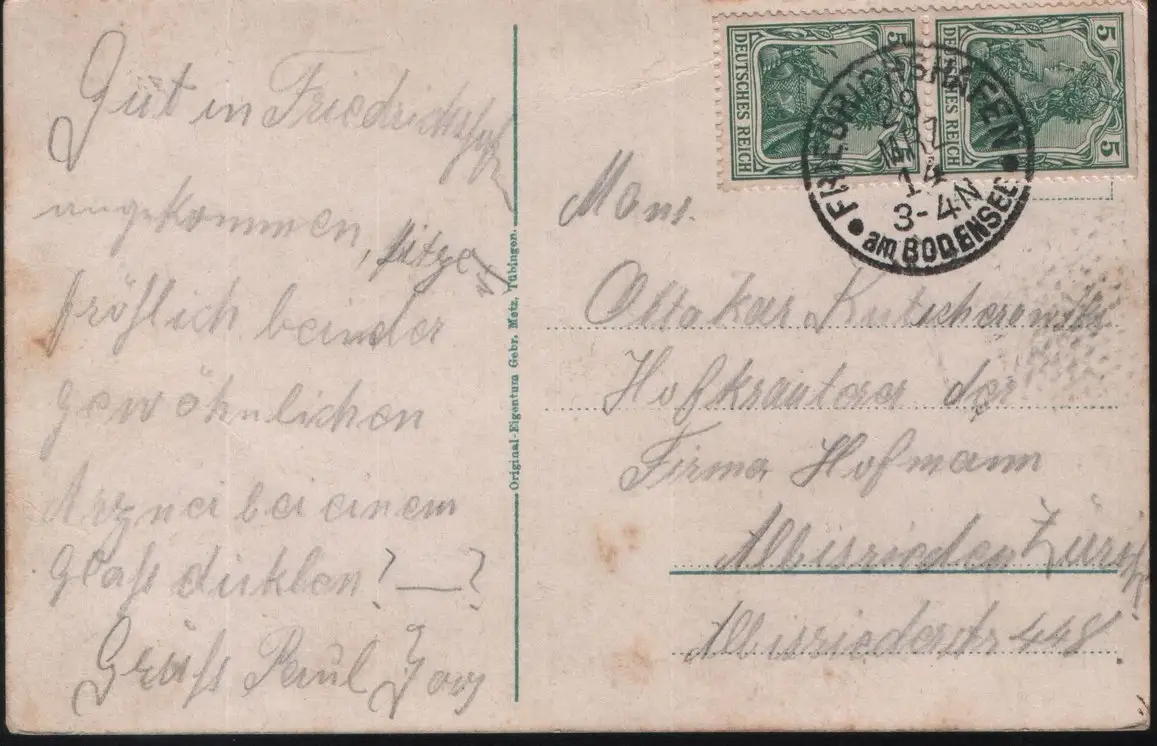 Gut in Friedrichshafen
angekommen, sitze
fröhlich bei der
gewöhnlichen
Arznei bei einem
Glass dunklen? — ?
Gruss Paul
Original-Eigentum Gebr. Metz, Tübingen.
DEUTSCHES REICH 5
DEUTSCHES REICH 5 5
FRIEDRICHSHAFEN
29
MRZ
14
3-4N
am BODENSEE
Mons.
Ottokar
Hofkrauterer der
Firma Hofmann
Albisrieden Zürich
Albisriederstr 448